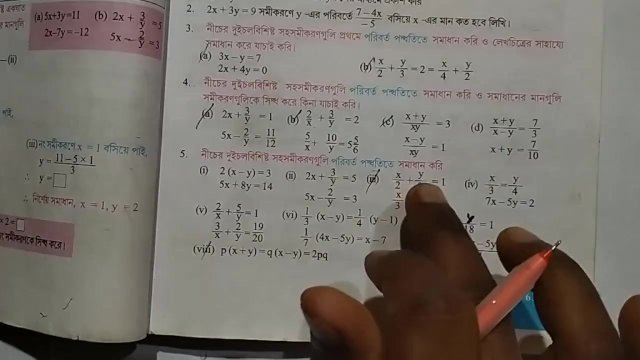 (a) 5x+3y=11 (b) 2x + 3/y = 5
2x-7y=-12 5x - 2/y = 3
(iii) নং সমীকরণে x = 1 বসিয়ে পাই,
y = (11 - 5 × 1)/3
∴ y =
∴ নির্ণেয় সমাধান, x = 1, y = 2
2. 2x + 3y = 9 সমীকরণে y -এর পরিবর্তে (7-4x)/-5 বসিয়ে x -এর মান কত হবে লিখি।
3. নীচের দুইচলবিশিষ্ট সহসমীকরণগুলি প্রথমে পরিবর্ত পদ্ধতিতে সমাধান করি ও লেখচিত্রের সাহায্যে
সমাধান করে যাচাই করি।
(a) 3x - y = 7
2x + 4y = 0
(b) x/2 + y/3 = 2 = x/4 + y/2
4. নীচের দুইচলবিশিষ্ট সহসমীকরণগুলি পরিবর্ত পদ্ধতিতে সমাধান করি ও সমাধানের মানগুলি
সমীকরণগুলিকে সিদ্ধ করে কিনা যাচাই করি।
(a) 2x + 3/y = 1 (b) 2/x + 3/y = 2 (c) (x + y)/xy = 3 (d) (x + y)/(x - y) = 7/3
5x - 2/y = 11/12 5/x + 10/y = 5 5/6 (x - y)/xy = 1 x + y = 7/10
5. নীচের দুইচলবিশিষ্ট সহসমীকরণগুলি পরিবর্ত পদ্ধতিতে সমাধান করি
(i) 2 (x - y) = 3 (ii) 2x + 3/y = 5 (iii) x/2 + y = 1 (iv) x/3 = y/4
5x + 8y = 14 5x - 2/y = 3 x/3 7x - 5y = 2
(v) 2/x + 5/y = 1 (vi) 1/3 (x - y) = 1/4 (y - 1) 18 = 1
3/x + 2/y = 19/20 1/7 (4x - 5y) = x - 7 - 5y
(viii) p (x + y) = q (x - y) = 2pq